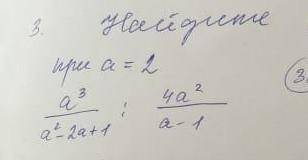 3. Найдите
при a = 2
a³/(a²-2a+1) : 4a²/(a-1)
(3.